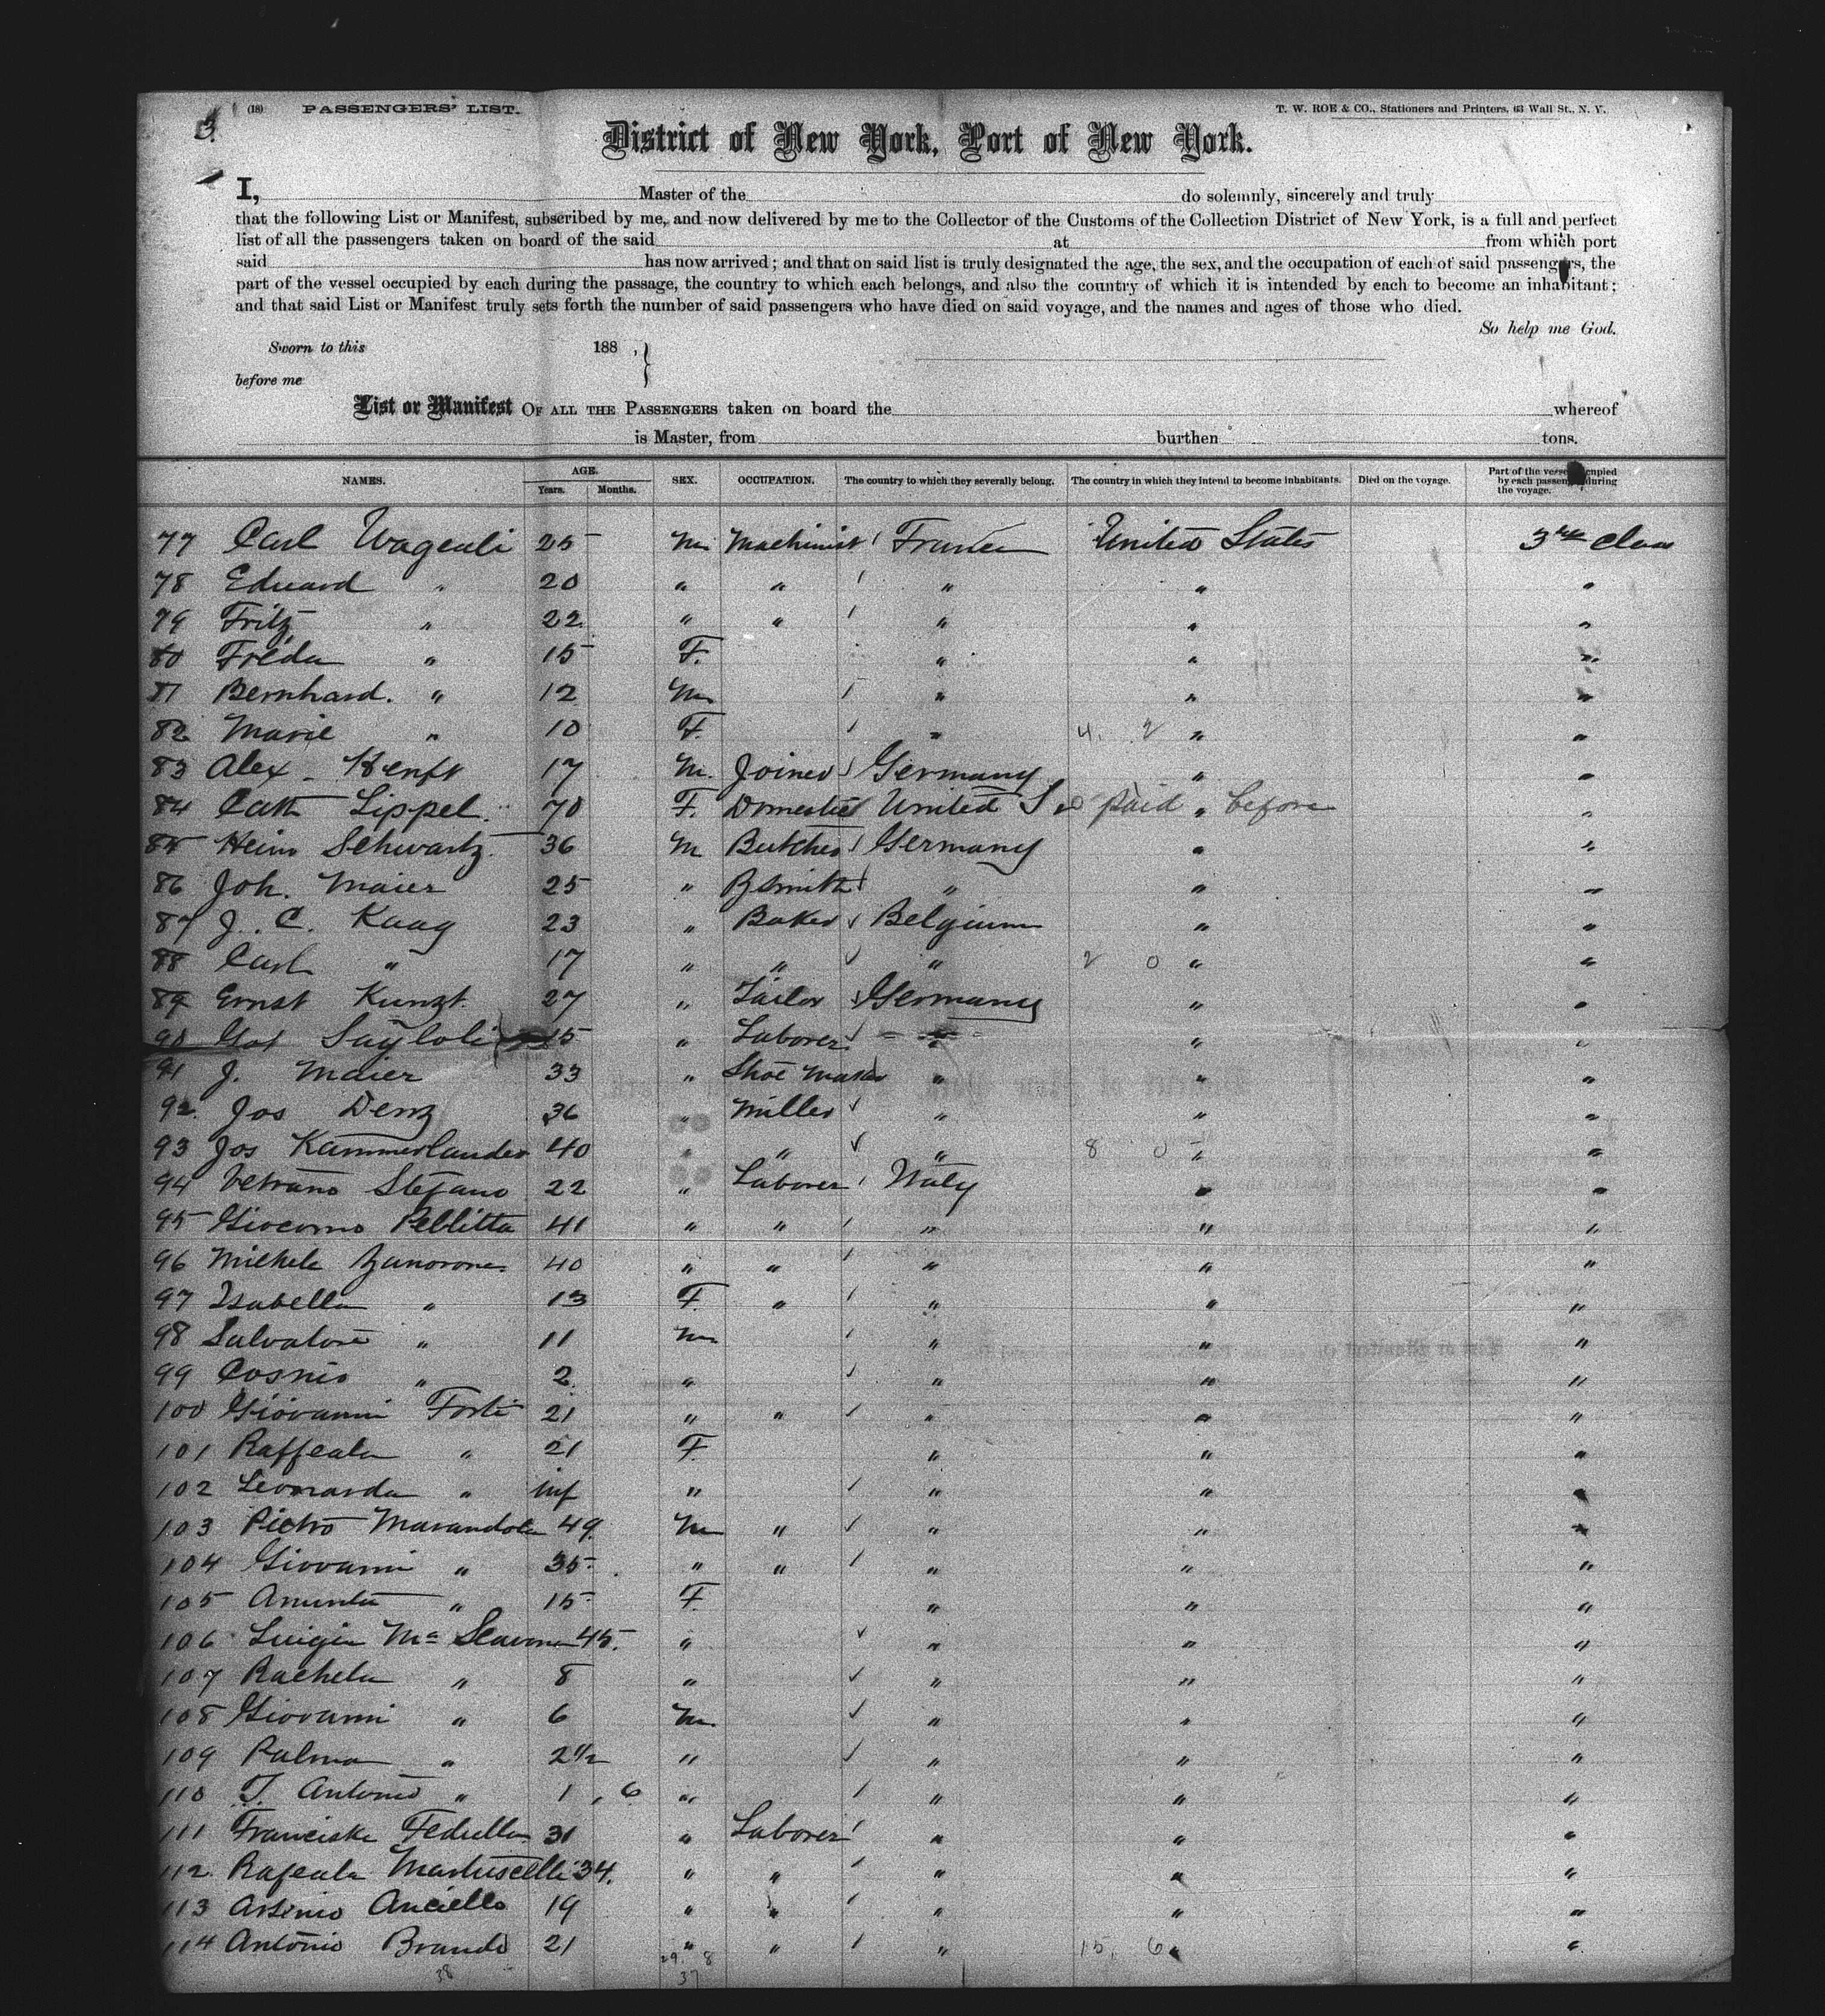 3
(18) PASSENGERS' LIST. T. W. ROE & CO., Stationers and Printers, 63 Wall St., N. Y.
District of New York, Port of New York.
I, Master of the do solemnly, sincerely and truly
that the following List or Manifest, subscribed by me, and now delivered by me to the Collector of the Customs of the Collection District of New York, is a full and perfect
list of all the passengers taken on board of the said at from which port
said has now arrived; and that on said list is truly designated the age, the sex, and the occupation of each of said passengers, the
part of the vessel occupied by each during the passage, the country to which each belongs, and also the country of which it is intended by each to become an inhabitant;
and that said List or Manifest truly sets forth the number of said passengers who have died on said voyage, and the names and ages of those who died.
So help me God.
Sworn to this 188 ,
before me
List or Manifest OF ALL THE PASSENGERS taken on board the whereof
is Master, from burthen tons.
NAMES. AGE. Years. Months. SEX. OCCUPATION. The country to which they severally belong. The country in which they intend to become inhabitants. Died on the voyage. Part of the vessel occupied by each passenger during the voyage.
77 Carl 25 M. Machinist France United States 3rd Class
78 Eduard " 20 " " " " "
79 Fritz " 22 " " " " "
80 Freda " 15 F. " " "
81 Bernhard. " 12 M. " " "
82 Marie " 10 F. " 4. 2 " "
83 Alex. Kenft 17 M. Joiner Germany " "
84 Cath Lippel. 70 F. Domestic United S paid " before "
85 Heinr Schwartz 36 M Butcher Germany " "
86 Joh. Maier 25 " Bsmith " " "
87 J. C. Kaag 23 " Baker Belgium " "
88 Carl " 17 " " " 2 0 " "
89 Ernst Kunzt. 27 " Tailor Germany " "
90 Got 15 " Laborer " " "
91 J. Maier 33 " Shoe maker " " "
92 Jos Denz 36 " Miller " " "
93 Jos Kammerlander 40 " " " 8 0 " "
94 Vetrano Stefano 22 " Laborer Italy " "
95 Giocomo Pellitta 41 " " " " "
96 Michele Zanorone 40 " " " " "
97 Isabella " 13 F. " " " "
98 Salvatore " 11 M " " "
99 Cosnio " 2 " " " "
100 Giovanni Forte 21 " " " " "
101 Raffeala " 21 F. " " "
102 Leonarda " inf " " " "
103 Pietro Marandola 49. M " " " "
104 Giovanni " 35 " " " " "
105 Anunta " 15 F. " " "
106 Luigia Ma Scavone 45. " " " "
107 Rachela " 8 " " " "
108 Giovanni " 6 M. " " "
109 Palma " 2 1/2 " " " "
110 T. Antonio " 1 6 " " " "
111 Franciska Fedulla 31 " Laborer " " "
112 Rafeala Martuscelli 34. " " " " "
113 Arsenio Anciello 19 " " " " "
114 Antonio Brando 21 " " " 15. 6 " "
38 29. 8
37